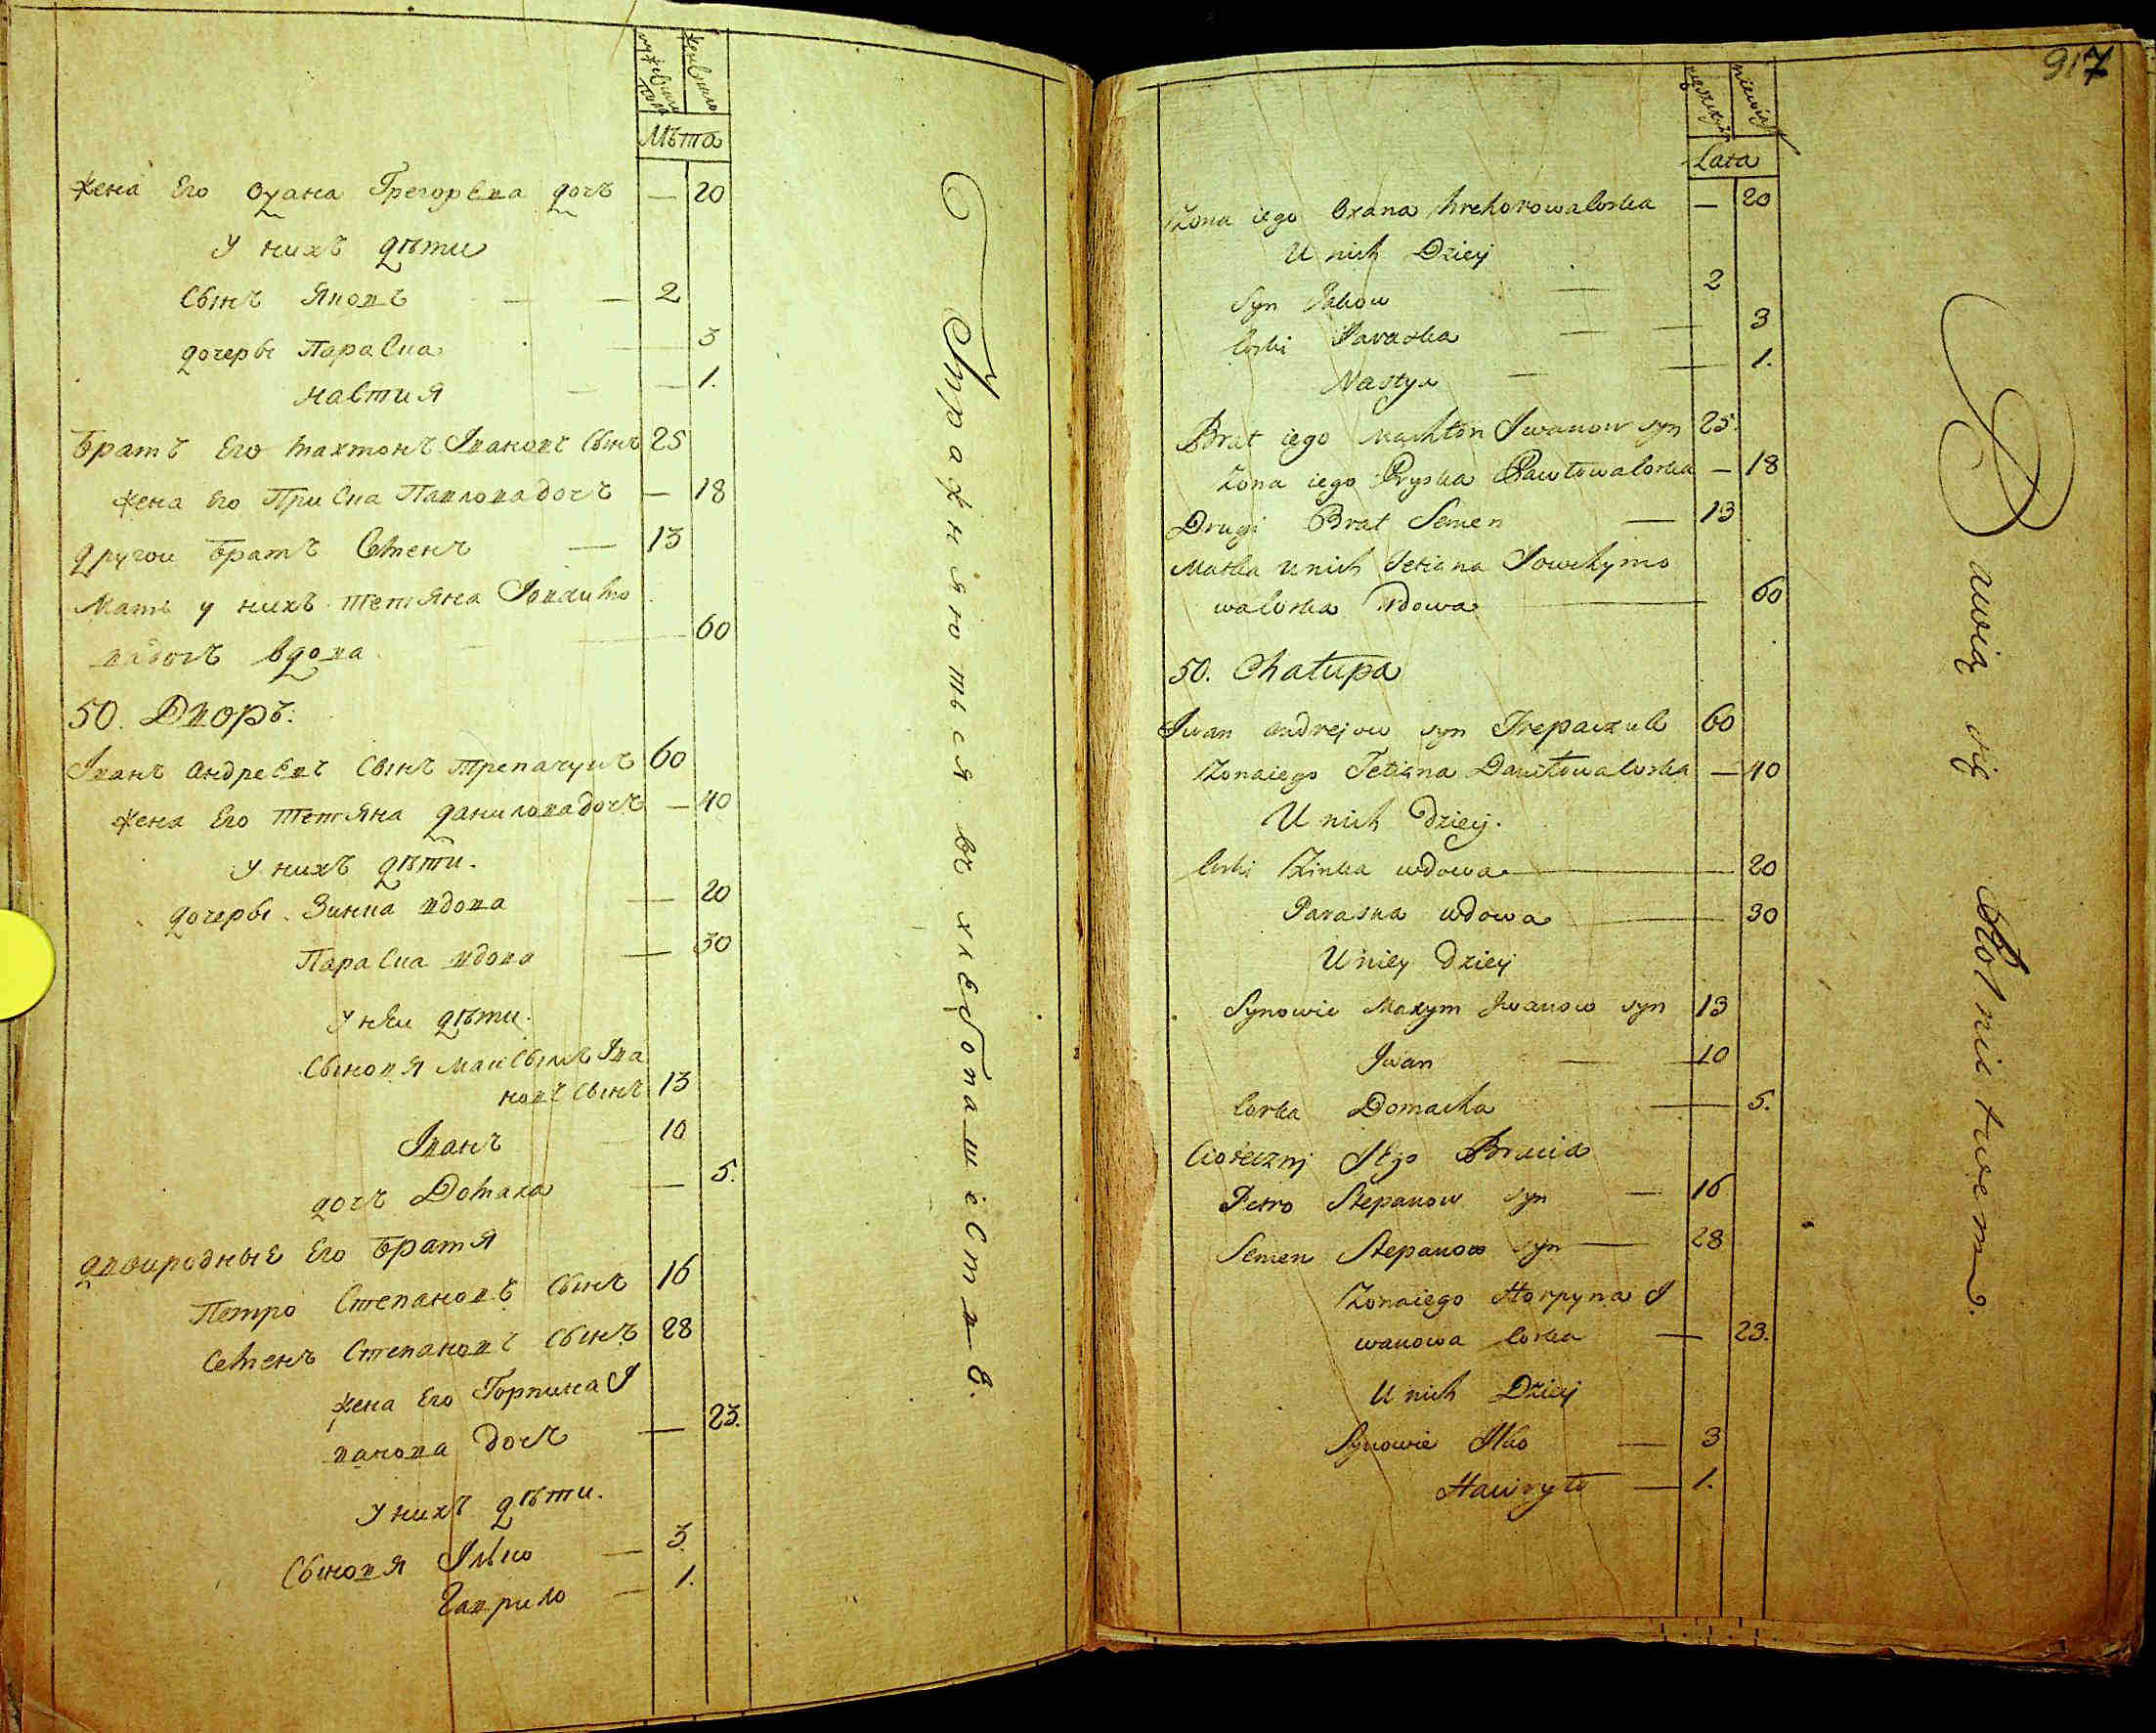 мужеска пола
женска
Лѣта
жена Его Оуана Грегорева дочъ — 20
У нихъ дѣти
Сынъ Яковъ — — 2
дочеры Параска — 3
Настия — — 1.
Братъ Его Махтонъ Івановъ Сынъ 25
жена Его Приска Павловадочъ — 18
другои Братъ Семенъ — 13
Мать у нихъ тетяна Іовхимо
вадочъ вдова — 60
50. Дворъ.
Іванъ Андреевъ Сынъ трепачукъ 60
жена Его тетяна даниловадочъ — 40
У нихъ дѣти.
дочеры Зинка вдова — 20
Параска вдова — 30
У нѣи дѣти.
Сыновя Максымъ Іва
новъ Сынъ 13
Іванъ — 10
дочъ Домаха — 5.
двоиродные Его Братя
Петро Степановъ Сынъ 16
Семенъ Степановъ Сынъ 28
жена Его Горпина І
ванова дочъ — 23.
У нихъ дѣти.
Сыновя Ілько — 3.
Гаврило — 1.
Упражняються въ хлебопашестве.
917
Lata
Żona iego Oxana Hrehorowa Corka — 20
U nich Dziey
Syn Jakow — 2
Corki Paraska — — 3
Nastya — — 1.
Brat iego Machton Iwanow syn 25.
Żona iego Pryska Pawłowa Corka — 18
Drugi Brat Semen — 13
Matka u nich Tetiana Jowchymo
wa Corka wdowa — 60
50. Chałupa
Iwan Andrejow syn Trepaczuk 60
Żona iego Tetiana Daniłowa Corka — 40
U nich dziey.
Corki Zinka wdowa — 20
Paraska wdowa — 30
U niey Dziey
Synowie Maxym Iwanow syn 13
Iwan — 10
Corka Domacha — 5.
Cioteczny Jego Bracia
Petro Stepanow syn — 16
Semen Stepanow syn — 28
Żona iego Horpyna I
wanowa Corka — 23.
U nich Dziey
Synowie Ilko — 3
Hawryło — 1.
Bawią się Rolnictwem.